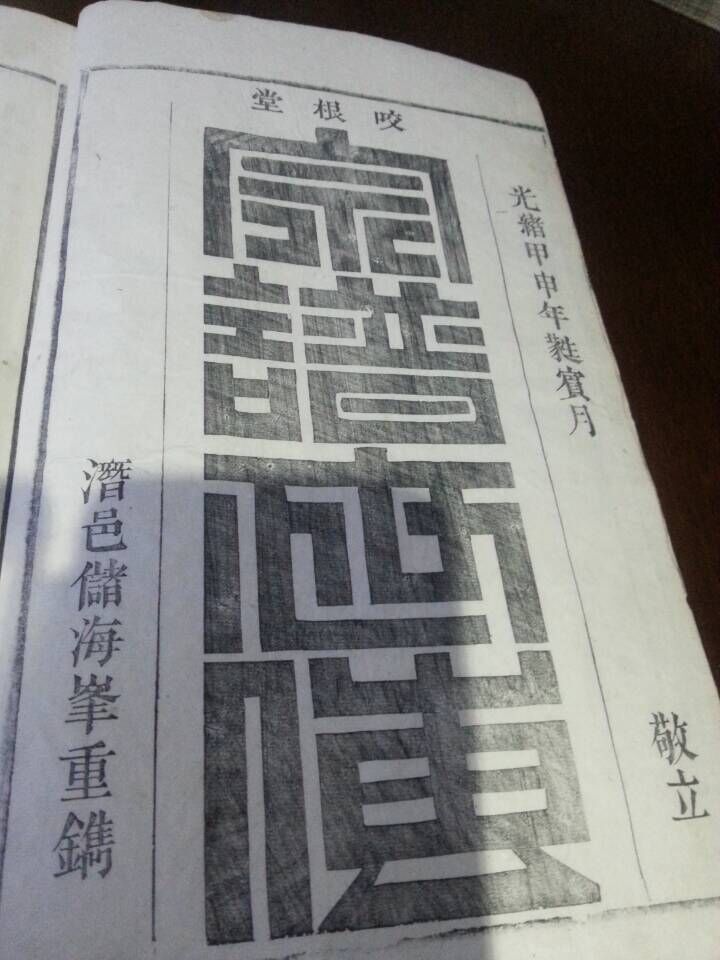 咬根堂
光緒甲申年蕤賓月
敬立
譜
潛邑儲海峯重鐫